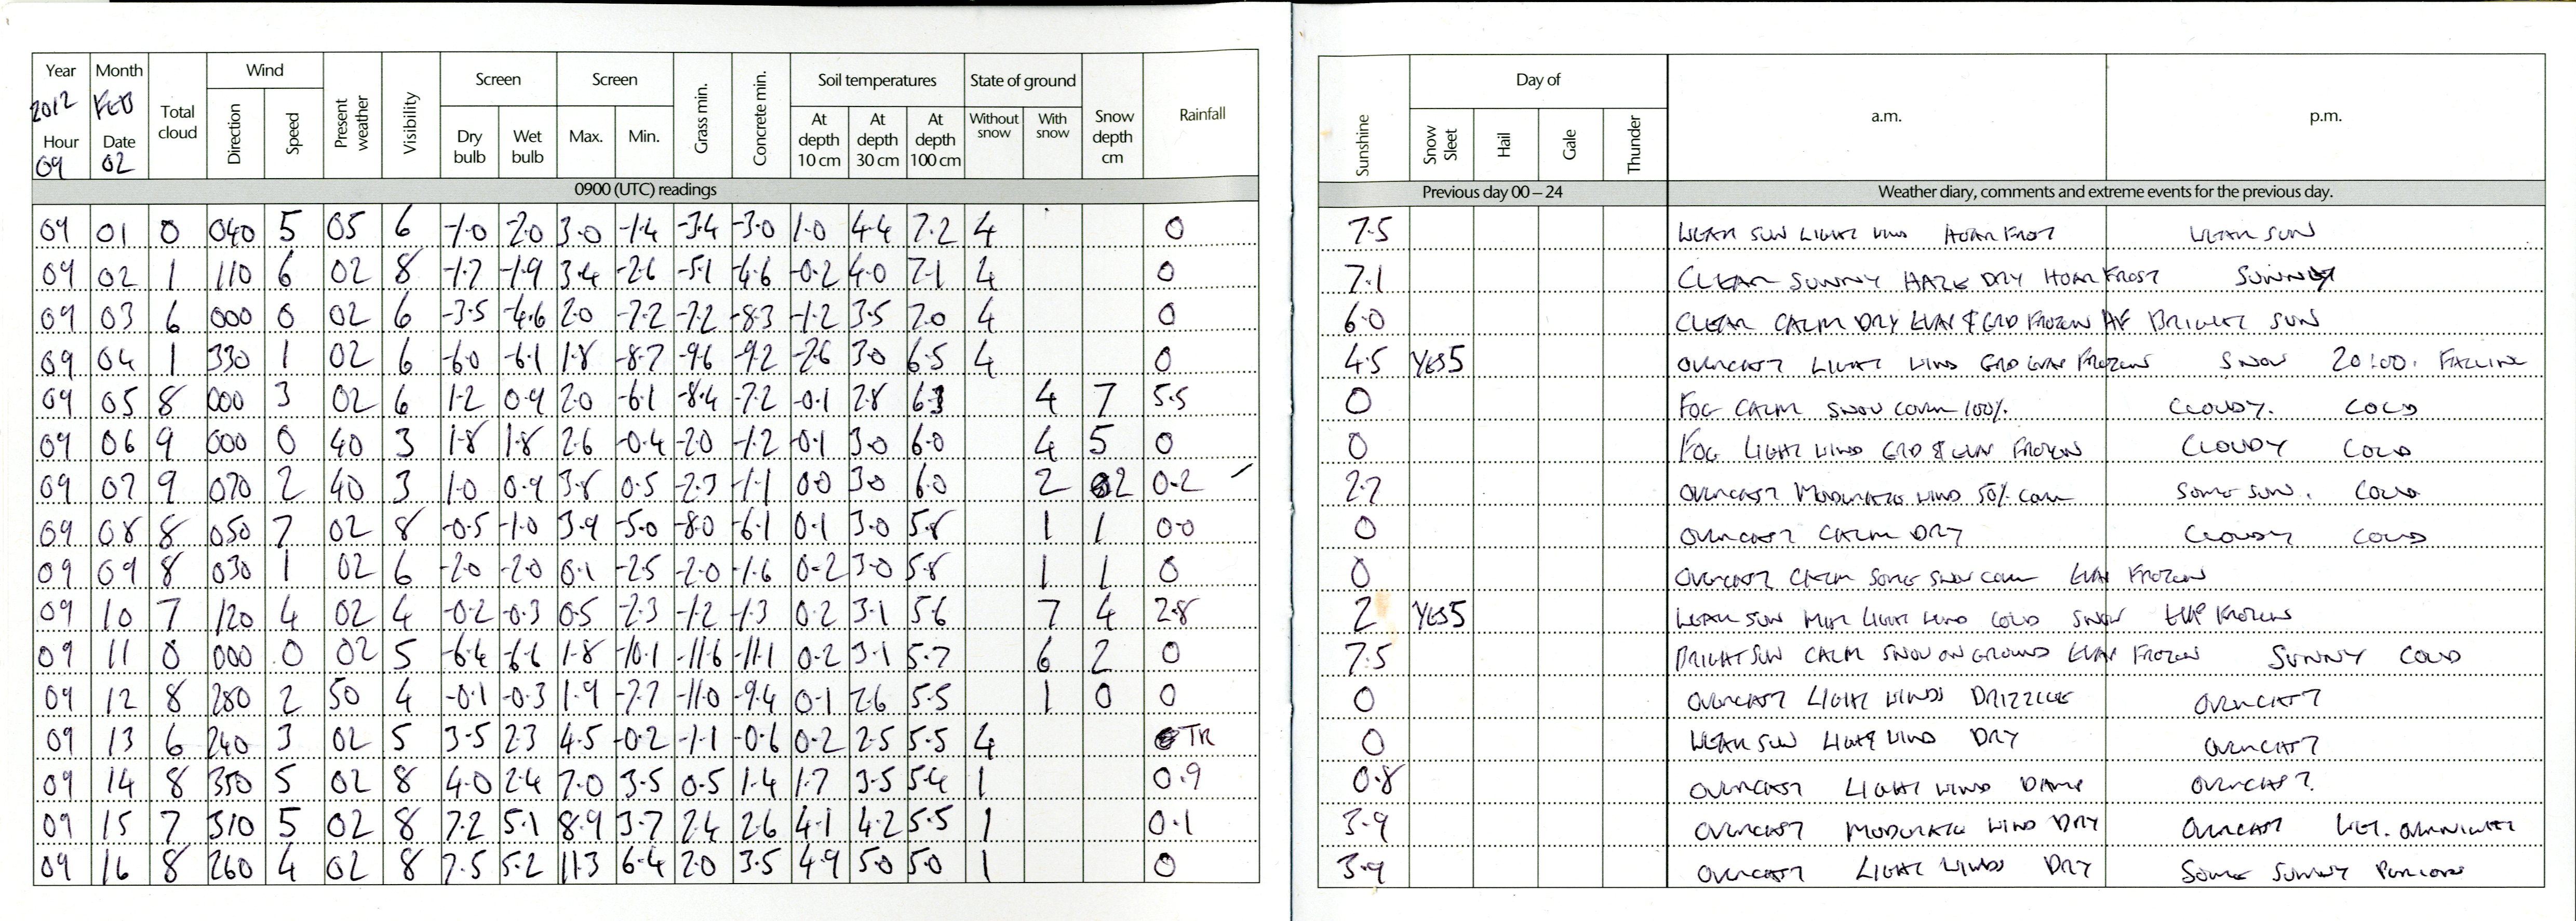 Year Month Total cloud Wind Present weather Visibility Screen Screen Grass min. Concrete min. Soil temperatures State of ground Snow depth cm Rainfall
2012 FEB Direction Speed Dry bulb Wet bulb Max. Min. At depth 10 cm At depth 30 cm At depth 100 cm Without snow With snow
Hour Date
09 02
0900 (UTC) readings
09 01 0 040 5 05 6 -1.0 -2.0 3.0 -1.4 -3.4 -3.0 1.0 4.4 7.2 4 0
09 02 1 110 6 02 8 -1.7 -1.9 3.4 -2.6 -5.1 -4.6 -0.2 4.0 7.1 4 0
09 03 6 000 0 02 6 -3.5 -4.6 2.0 -7.2 -7.2 -8.3 -1.2 3.5 7.0 4 0
09 04 1 330 1 02 6 -6.0 -6.1 1.8 -8.7 -9.6 -9.2 -2.6 3.0 6.5 4 0
09 05 8 000 3 02 6 1.2 0.9 2.0 -6.1 -8.4 -7.2 -0.1 2.8 6.3 4 7 5.5
09 06 9 000 0 40 3 1.8 1.8 2.6 -0.4 -2.0 -1.2 -0.1 3.0 6.0 4 5 0
09 07 9 070 2 40 3 1.0 0.9 3.8 0.5 -2.3 -1.1 0.0 3.0 6.0 2 2 0.2
09 08 8 050 7 02 8 -0.5 -1.0 3.9 -5.0 -8.0 -6.1 0.1 3.0 5.8 1 1 0.0
09 09 8 030 1 02 6 -2.0 -2.0 0.1 -2.5 -2.0 -1.6 0.2 3.0 5.8 1 1 0
09 10 7 120 4 02 4 -0.2 -0.3 0.5 -2.3 -1.2 -1.3 0.2 3.1 5.6 7 4 2.8
09 11 0 000 0 02 5 -6.4 -6.6 1.8 -10.1 -11.6 -11.1 0.2 3.1 5.7 6 2 0
09 12 8 280 2 50 4 -0.1 -0.3 1.9 -7.7 -11.0 -9.4 0.1 2.6 5.5 1 0 0
09 13 6 240 3 02 5 3.5 2.3 4.5 -0.2 -1.1 -0.6 0.2 2.5 5.5 4 TR
09 14 8 350 5 02 8 4.0 2.4 7.0 3.5 0.5 1.4 1.7 3.5 5.4 1 0.9
09 15 7 310 5 02 8 7.2 5.1 8.9 3.7 2.4 2.6 4.1 4.2 5.5 1 0.1
09 16 8 260 4 02 8 7.5 5.2 11.3 6.4 2.0 3.5 4.9 5.0 5.0 1 0
Sunshine Day of a.m. p.m.
Snow Sleet Hail Gale Thunder
Previous day 00 – 24 Weather diary, comments and extreme events for the previous day.
7.5 WEAK SUN LIGHT WIND HOAR FROST WEAK SUN
7.1 CLEAR SUNNY HAZE DRY HOAR FROST SUNNY
6.0 CLEAR CALM DRY EVAP & GRD FROZEN HF BRIGHT SUN
4.5 YES5 OVERCAST LIGHT WIND GRD EVAP FROZEN SNOW 20:00. FALLING
0 FOG CALM SNOW COVER 100% CLOUDY. COLD
0 FOG LIGHT WIND GRD & EVAP FROZEN CLOUDY COLD
2.7 OVERCAST MODERATE WIND 50% COVER SOME SUN. COLD
0 OVERCAST CALM DRY CLOUDY COLD
0 OVERCAST CALM SOME SNOW COVER EVAP FROZEN
2 YES5 WEAK SUN LIGHT WIND COLD SNOW EVAP FROZEN
7.5 BRIGHT SUN CALM SNOW ON GROUND EVAP FROZEN SUNNY COLD
0 OVERCAST LIGHT WINDS DRIZZLE OVERCAST
0 WEAK SUN LIGHT WIND DRY OVERCAST
0.8 OVERCAST LIGHT WIND DAMP OVERCAST.
3.9 OVERCAST MODERATE WIND DRY OVERCAST WET. OVERNIGHT
3.9 OVERCAST LIGHT WINDS DRY SOME SUNNY PERIODS